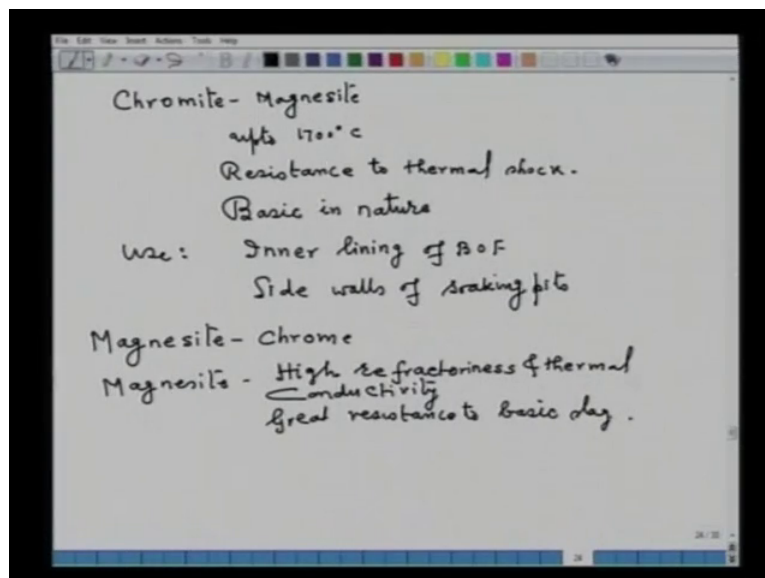 File Edit View Insert Actions Tools Help
Chromite - Magnesite
upto 1700° C
Resistance to thermal shock.
Basic in nature
Use: Inner lining of BOF
Side walls of soaking pits
Magnesite - Chrome
Magnesite - High refractoriness & thermal
Conductivity
Great resistance to basic slag.
24